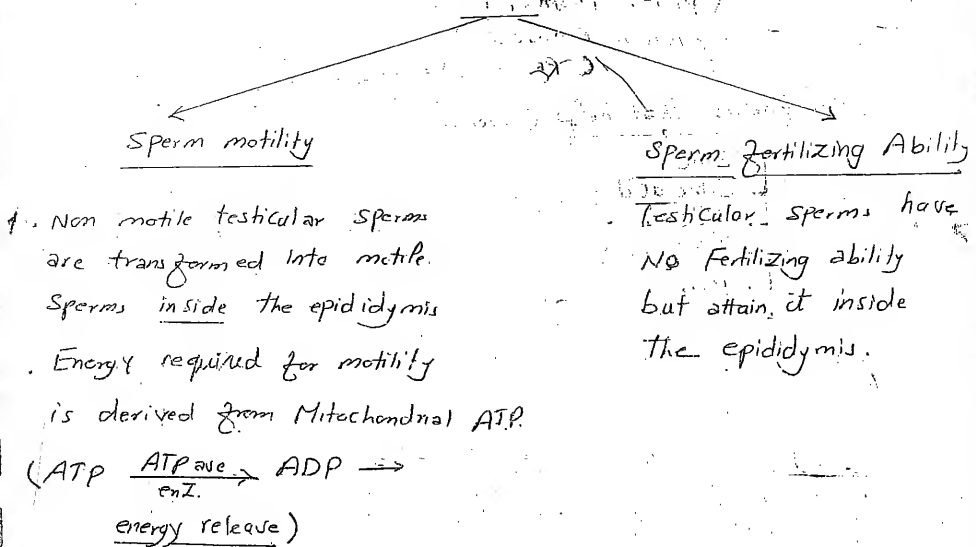 Sperm motility
1. Non motile testicular sperms
are transformed into motile.
Sperms inside the epididymis
. Energy required for motility
is derived from Mitochondrial ATP.
(ATP ATPase enz. → ADP →
energy release)
Sperm Fertilizing Ability
. Testicular sperms have
No Fertilizing ability
but attain it inside
the epididymis.